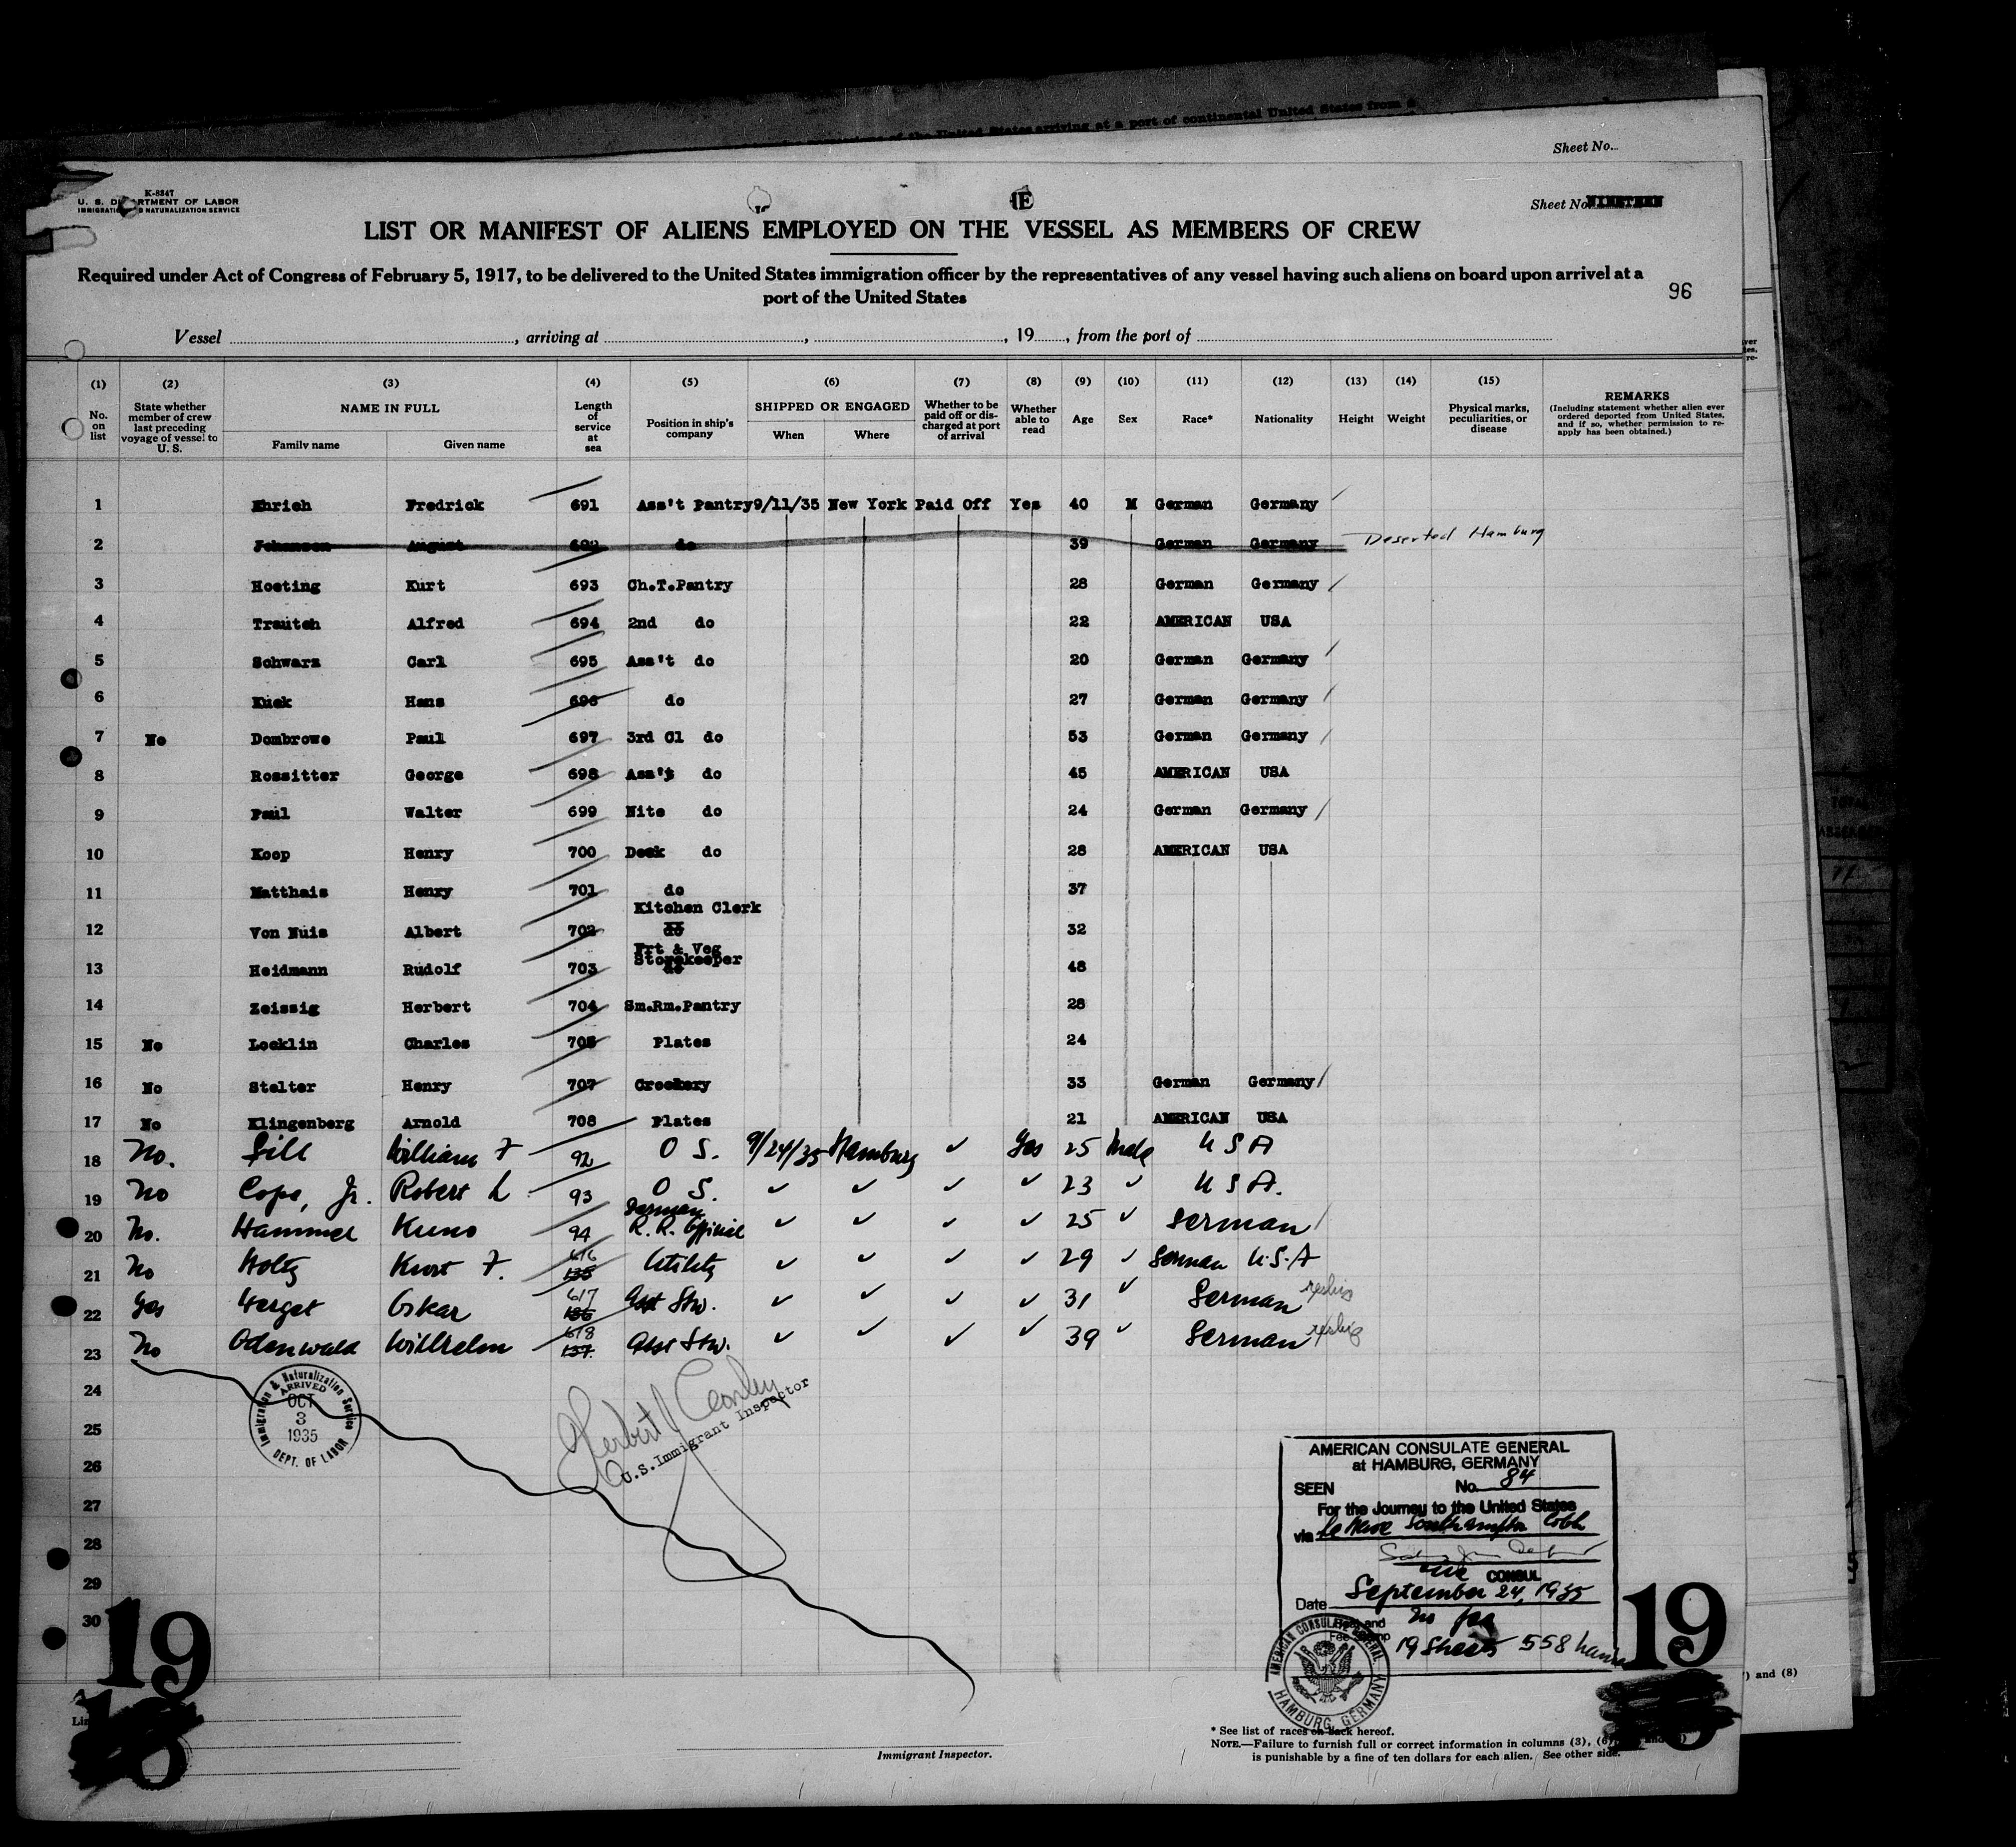 Sheet No.
K-8347
U. S. DEPARTMENT OF LABOR
IMMIGRATION AND NATURALIZATION SERVICE
Sheet No. NINETEEN
LIST OR MANIFEST OF ALIENS EMPLOYED ON THE VESSEL AS MEMBERS OF CREW
Required under Act of Congress of February 5, 1917, to be delivered to the United States immigration officer by the representatives of any vessel having such aliens on board upon arrivel at a
port of the United States
96
Vessel , arriving at , , 19 , from the port of
(1) (2) (3) (4) (5) (6) (7) (8) (9) (10) (11) (12) (13) (14) (15)
No. on list State whether member of crew last preceding voyage of vessel to U. S. NAME IN FULL Family name Given name Length of service at sea Position in ship's company SHIPPED OR ENGAGED When Where Whether to be paid off or discharged at port of arrival Whether able to read Age Sex Race* Nationality Height Weight Physical marks, peculiarities, or disease REMARKS (Including statement whether alien ever ordered deported from United States, and if so, whether permission to reapply has been obtained.)
1 Ehrich Fredrick 691 Ass't Pantry 9/11/35 New York Paid Off Yes 40 M German Germany
2 Johansen August 692 do 39 German Germany Deserted Hamburg
3 Hoeting Kurt 693 Ch.T.Pantry 28 German Germany
4 Trautch Alfred 694 2nd do 22 AMERICAN USA
5 Schwarz Carl 695 Ass't do 20 German Germany
6 Kuck Hans 696 do 27 German Germany
7 No Dombrowe Paul 697 3rd Cl do 53 German Germany
8 Rossitter George 698 Ass't do 45 AMERICAN USA
9 Paul Walter 699 Nite do 24 German Germany
10 Koop Henry 700 Deck do 28 AMERICAN USA
11 Matthais Henry 701 do 37
12 Von Nuis Albert 702 Kitchen Clerk do 32
13 Heidmann Rudolf 703 Frt & Veg Storekeeper do 48
14 Zeissig Herbert 704 Sm.Rm.Pantry 28
15 No Locklin Charles 705 Plates 24
16 No Stelter Henry 707 Crockery 33 German Germany
17 No Klingenberg Arnold 708 Plates 21 AMERICAN USA
18 No. Sill William F 92 O S. 9/24/35 Hamburg Yes 25 Male U S A
19 No Cope, Jr. Robert L 93 O S. 23 U S A.
20 No. Hammel Kuno 94 German R. R. Official 25 German
21 No Holtz Kurt F. 616 135 Utility 29 German U.S.A
22 Yes Herget Oskar 617 136 Asst Stw. 31 German
23 No Odenwald Willhelm 618 137 Asst Stw. 39 German
24
25
26
27
28
29
30
Immigration & Naturalization Service
ARRIVED
OCT
3
1935
DEPT. OF LABOR
U.S.Immigrant Inspector
AMERICAN CONSULATE GENERAL
at HAMBURG, GERMANY
SEEN No. 84
For the Journey to the United States
via Le Havre Southampton Cobh
CONSUL
Date September 24, 1935
No fee
19 Sheets 558 names
AMERICAN CONSULATE GENERAL
HAMBURG, GERMANY
19
19
Immigrant Inspector.
* See list of races on back hereof.
NOTE.—Failure to furnish full or correct information in columns (3), (6), and
is punishable by a fine of ten dollars for each alien. See other side.
) and (8)